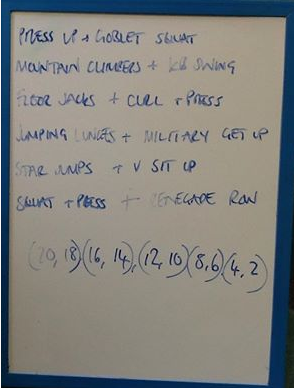 PRESS UP + GOBLET SQUAT
MOUNTAIN CLIMBERS + KB SWING
FLOOR JACKS + CURL + PRESS
JUMPING LUNGES + MILITARY GET UP
STAR JUMPS + V SIT UP
SQUAT + PRESS + RENEGADE ROW
(20, 18)(16, 14),(12, 10)(8,6)(4, 2)